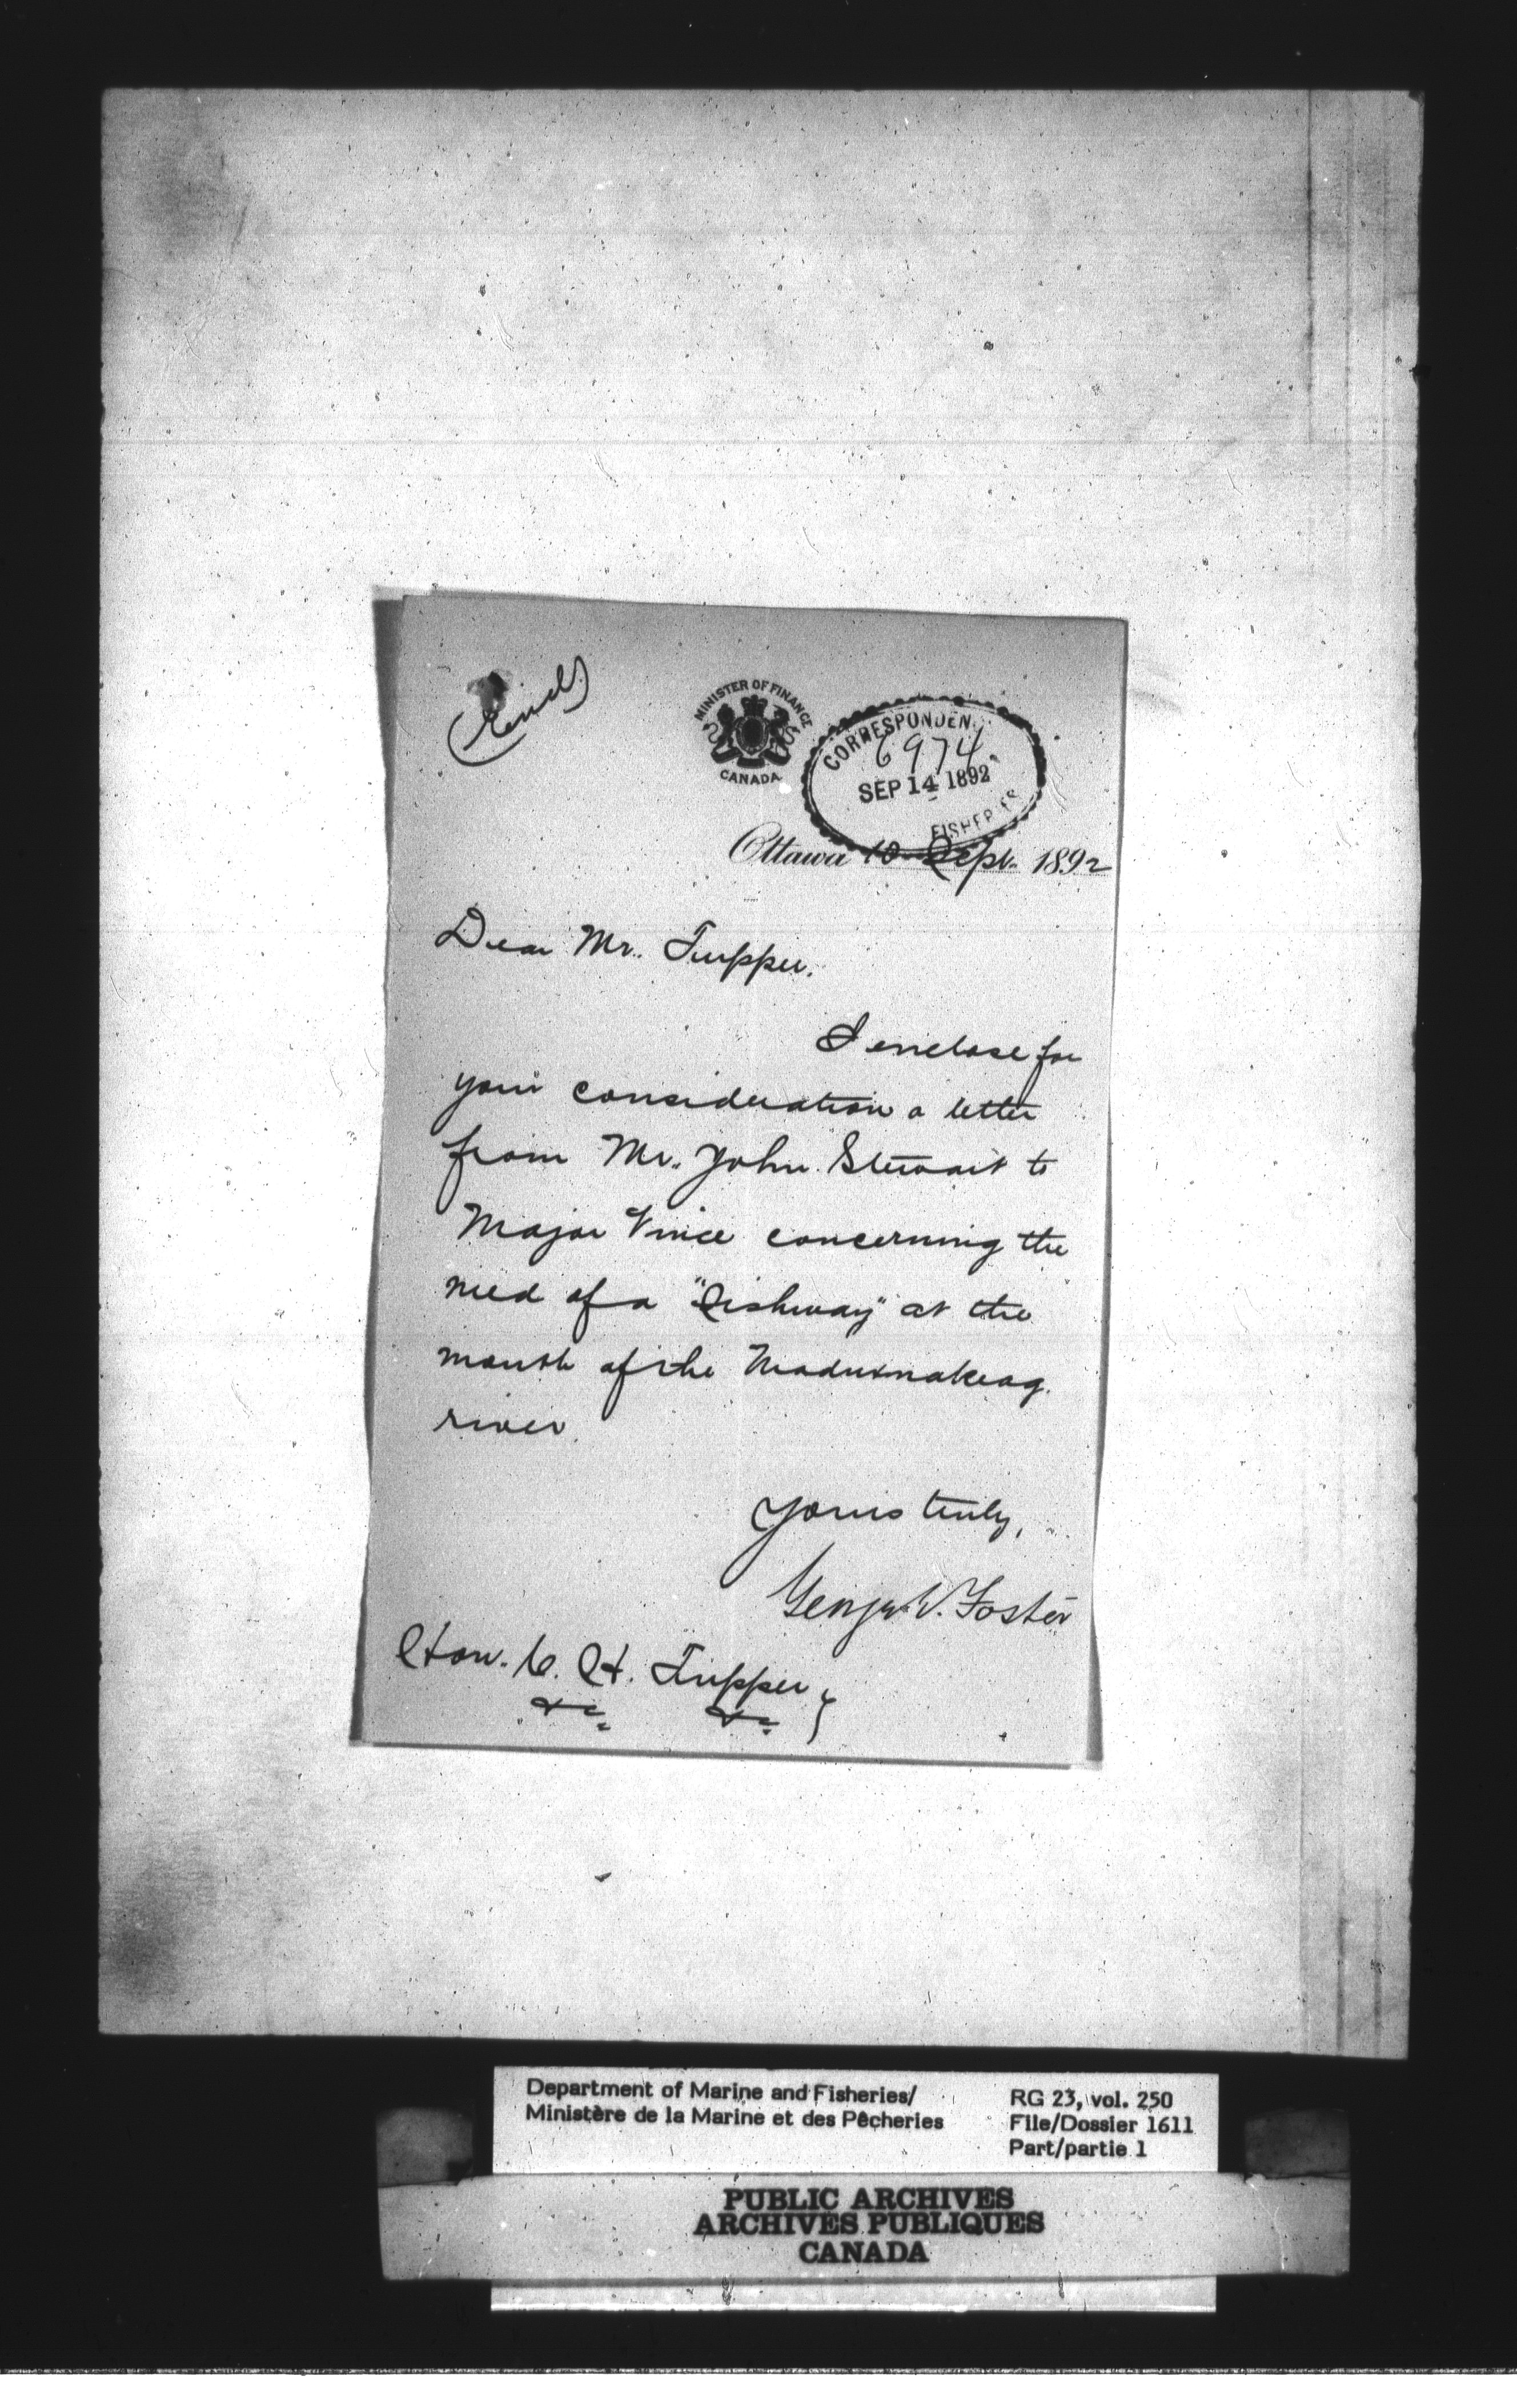 (Encl)
MINISTER OF FINANCE
CANADA
CORRESPONDEN
6974
SEP 14 1892
FISHERIES
Ottawa 10 Sept. 1892
Dear Mr. Tupper.
I enclose for
your consideration a letter
from Mr. John Stewart to
Major Vince concerning the
need of a "fishway" at the
mouth of the Maduxnakeag
river.
Yours truly,
George E. Foster
Hon. C. H. Tupper
&c &c
Department of Marine and Fisheries/
Ministère de la Marine et des Pêcheries
RG 23, vol. 250
File/Dossier 1611
Part/partie 1
PUBLIC ARCHIVES
ARCHIVES PUBLIQUES
CANADA